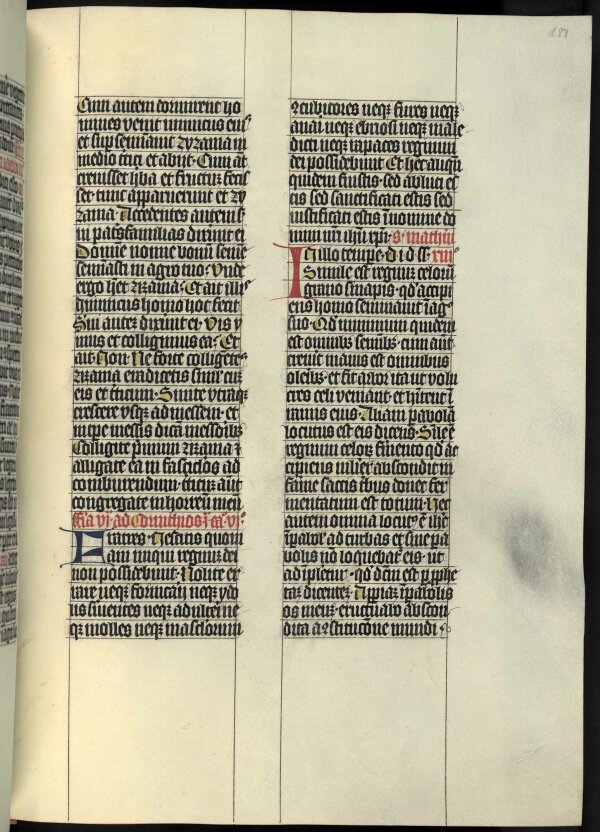 188
Cum autem dormirent ho
mines venit inimicus eius
et supseminavit zyzania in
medio tritici et abiit · Cum aūt
crevisset hba et fructuz fecis
set · tunc apparuerunt et zy
zania · Accedentes autem s̄ui
patrisfamilias dixerūt ei
Domīe nonne bonū semē
seminasti in agro tuo · Unde
ergo het zizania · Et ait illis
Inimicus homo hoc fecit
Sui autez dixerūt ei · Vis y
mus et colligimus ea · Et
ait Non · Ne forte colligētes
zizania eradicetis simul cuz
eis et triticum · Sinite vtraqz
crescere vsqz ad messem · et
in tpe messis dicā messoribz
Colligite p̄mum zizania et
alligate ea in fascic̄los ad
comburendum · triticuz aūt
congregate in horreū meū
ffīa vj · ad Corinthios j · ca · vj ·
Fratres · Nescitis quoni
am iniqui regnuz dei
non possidebunt · Nolite er
rare neqz fornicarij neqz ydo
lis s̄uientes neqz adulteri ne
qz molles neqz masc̄lorum
z cubitores neqz fures neqz
avari neqz ebriosi neqz male
dici neqz rapaces regnum
dei possidebunt · Et hec aliqn̄
quidem fuistis · sed abluti es
tis sed sanctificati estis sed
iustificati estis ī nomine do
mini nr̄i ihū xp̄i · s · mathm̄
In illo tempe · D · i · d · ss · xiij
Simile est regnuz celorū
grano sinapis · qd accipi
ens homo seminavit ī agro
suo · Qd minimum quidem
est omnibz seminibz · cum aūt
creverit maius est omnibus
oleribz · et fit arbor ita ut volu
cres celi veniant · et hītent ī
ramis eius · Aliam pabolā
locutus est eis dicens · Sile ē
regnum celorz fermēto qd ac
ceptum mulier abscondit in
farīne satis tribus donec fer
mentatum est totum · Hec
autem omnia locutꝰ ē ihc
ī pabol ad turbas et sine pa
bolis nō loquebat eis · ut
adīpletur · qd dcm̄ est p pphe
taz dicentez · Apiaz ī pabolis
os meuz · eructuabo abscon
dita a 9stitucōne mundi ·